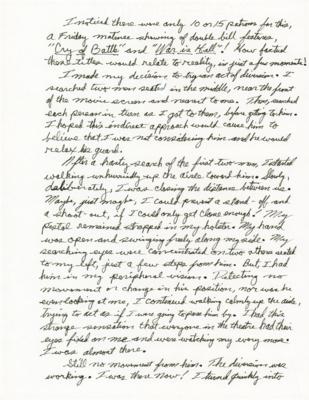 I noticed there were only 10 or 15 patrons for this,
a Friday matinee showing of double bill features,
"Cry of Battle" and "War is Hell"! How fitted
these titles would relate to reality, in just a few moments!
I made my decision to try an act of diversion. I
searched two men seated in the middle, near the front
of the movie screen and nearest to me. Then, searched
each person in turn as I got to them, before getting to him.
I hoped this indirect approach would cause him to
believe that I was not considering him and he would
relax his guard.
After a hasty search of the first two men, I started
walking unhurriedly up the aisle toward him. Slowly,
deliberately, I was closing the distance between us.
Maybe, just maybe, I could prevent a stand-off, and
a shoot-out, if I could only get close enough! My
pistol remained strapped in my holster. My hand
was open and swinging freely along my side. My
searching eyes were concentrated on two others seated
to my left, just a few steps from him. But I had
him in my peripheral vision. Detecting no
movement or change in his position, nor was he
even looking at me, I continued walking calmly up the aisle,
trying to act as if I were going to pass him by. I had this
strange sensation that everyone in the theatre had their
eyes fixed on me and were watching my every move.
I was almost there.
Still no movement from him. The diversion was
working. I was there now! I turned quickly into